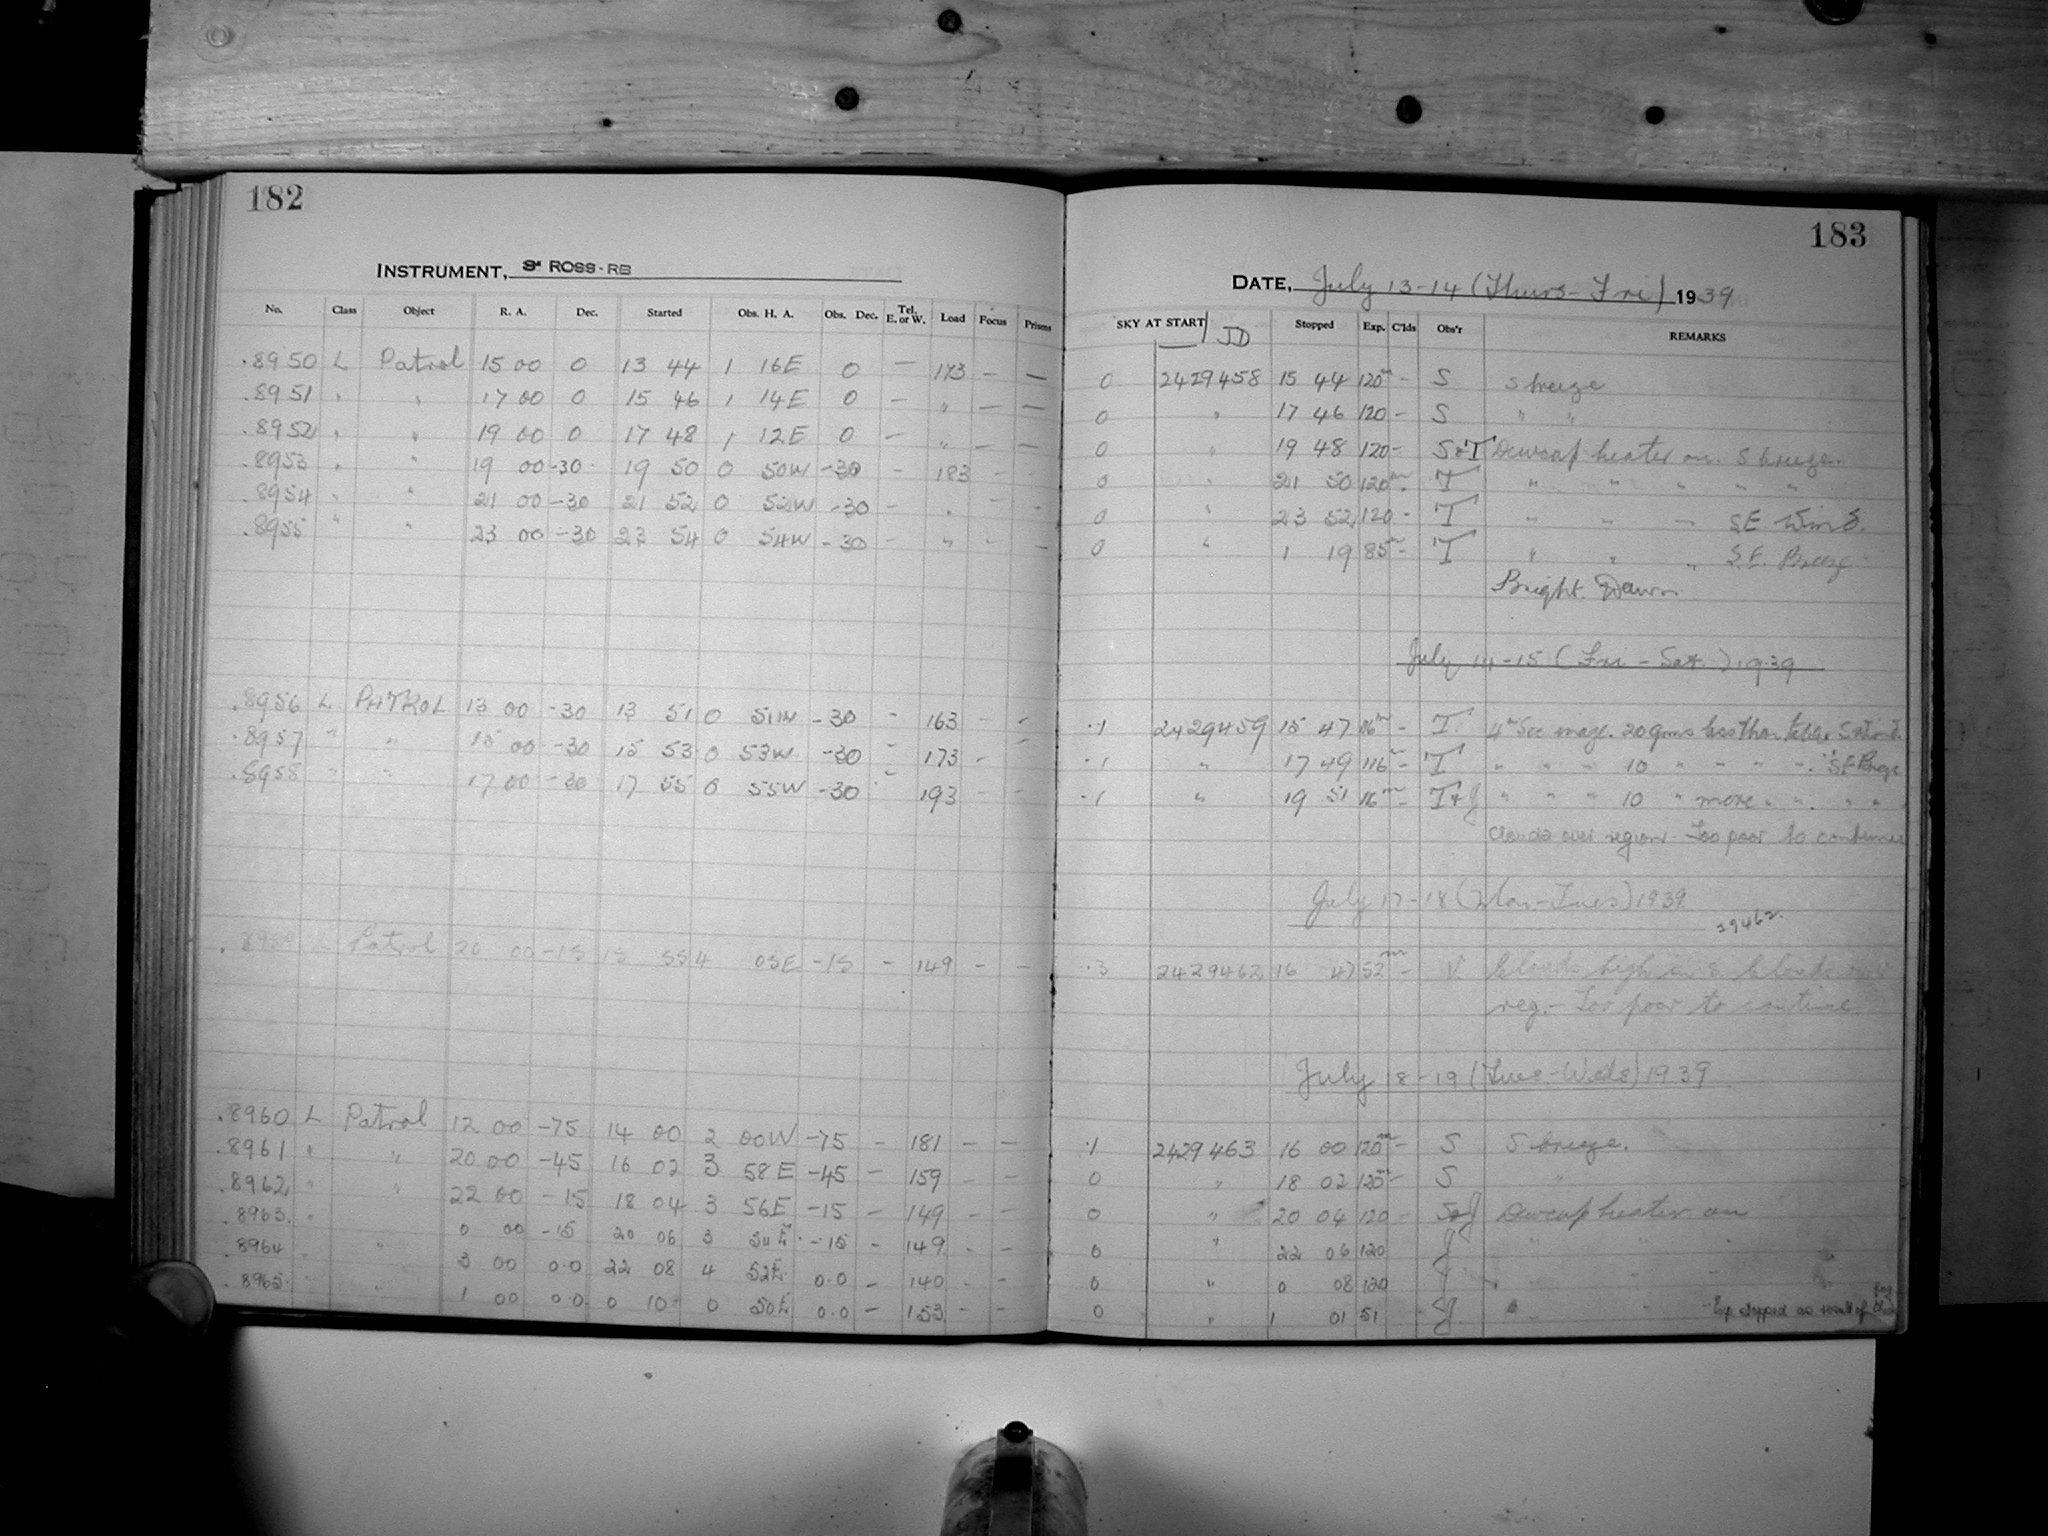 182
INSTRUMENT, 3" ROSS-RB
No. Class Object R. A. Dec. Started Obs. H. A. Obs. Dec. Tel. E. or W. Load Focus Prisms
.8950 L Patrol 15 00 0 13 44 1 16E 0 — 173 — —
.8951 " " 17 00 0 15 46 1 14E 0 — " — —
.8952 " " 19 00 0 17 48 1 12E 0 — " — —
.8953 " " 19 00 -30 19 50 0 50W -30 - 183 - -
.8954 " " 21 00 -30 21 52 0 52W -30 - " - -
.8955 " " 23 00 -30 23 54 0 54W -30 - " - -
.8956 L PATROL 13 00 -30 13 51 0 51W -30 - 163 - -
.8957 " " 15 00 -30 15 53 0 53W -30 - 173 - -
.8958 " " 17 00 -30 17 55 0 55W -30 - 193 - -
.8959 L Patrol 20 00 -15 15 55 4 05E -15 - 149 - -
.8960 L Patrol 12 00 -75 14 00 2 00W -75 - 181 - -
.8961 " " 20 00 -45 16 02 3 58E -45 - 159 - -
.8962 " " 22 00 -15 18 04 3 56E -15 - 149 - -
.8963 " " 0 00 -15 20 06 3 54E -15 - 149 - -
.8964 " " 3 00 0.0 22 08 4 52E 0.0 - 140 - -
.8965 " " 1 00 0.0 0 10 0 50E 0.0 - 153 - -
183
DATE, July 13-14 (Thurs-Fri) 1939
SKY AT START JD Stopped Exp. C'lds Obs'r REMARKS
0 2429458 15 44 120m - S S breeze
0 " 17 46 120 - S " "
0 " 19 48 120 - S+T Dewcap heater on. S breeze.
0 " 21 50 120m - T " " " " "
0 " 23 52 120 - T " " " SE Wind.
0 " 1 19 85m - T " " " S.E. Breeze
Bright Dawn
July 14-15 (Fri-Sat.) 1939
.1 2429459 15 47 116m - T. 4m Sec mage. 20 gms less than table.
.1 " 17 49 116m - T " " " 10 " " " " SE Breeze
.1 " 19 51 116m - T+J " " " 10 " more " " " "
Clouds over region Too poor to continue
July 17-18 (Mon-Tues) 1939
29462
.3 2429462 16 47 52m - V Clouds high in S Clouds over
reg. - Too poor to continue.
July 18-19 (Tues-Weds) 1939
.1 2429463 16 00 120m - S S breeze.
0 " 18 02 120m - S "
0 " 20 04 120 - S+J Dewcap heater on
0 " 22 06 120 J " " "
0 " 0 08 120 J " " "
0 " 1 01 51 - J " Exp stopped as result of